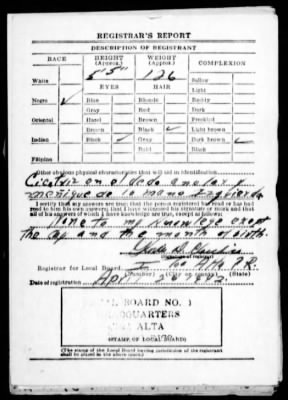 REGISTRAR'S REPORT
DESCRIPTION OF REGISTRANT
RACE
HEIGHT (Approx.)
WEIGHT (Approx.)
COMPLEXION
White
5'5"
126
Sallow
EYES
HAIR
Light
Negro ✓
Blue
Blonde
Ruddy
Gray
Red
Dark
Oriental
Hazel
Brown
Freckled
Brown
Black ✓
Light brown
Indian
Black ✓
Gray
Dark brown ✓
Bald
Black
Filipino
Other obvious physical characteristics that will aid in identification
Cicatriz en el dedo
de la mano Izquierda
I certify that my answers are true; that the person registered has read or has had read to him his own answers; that I have witnessed his signature or mark and that all of his answers of which I have knowledge are true, except as follows:
to my knowledge except
the age and the month of birth.
Registrar for Local Board
(Number) (City or county) (State)
Date of registration April
BOARD NO.
HEADQUARTERS
ALTA
(STAMP OF LOCAL BOARD)
(The stamp of the Local Board having jurisdiction of the registrant
shall be placed in the above space)